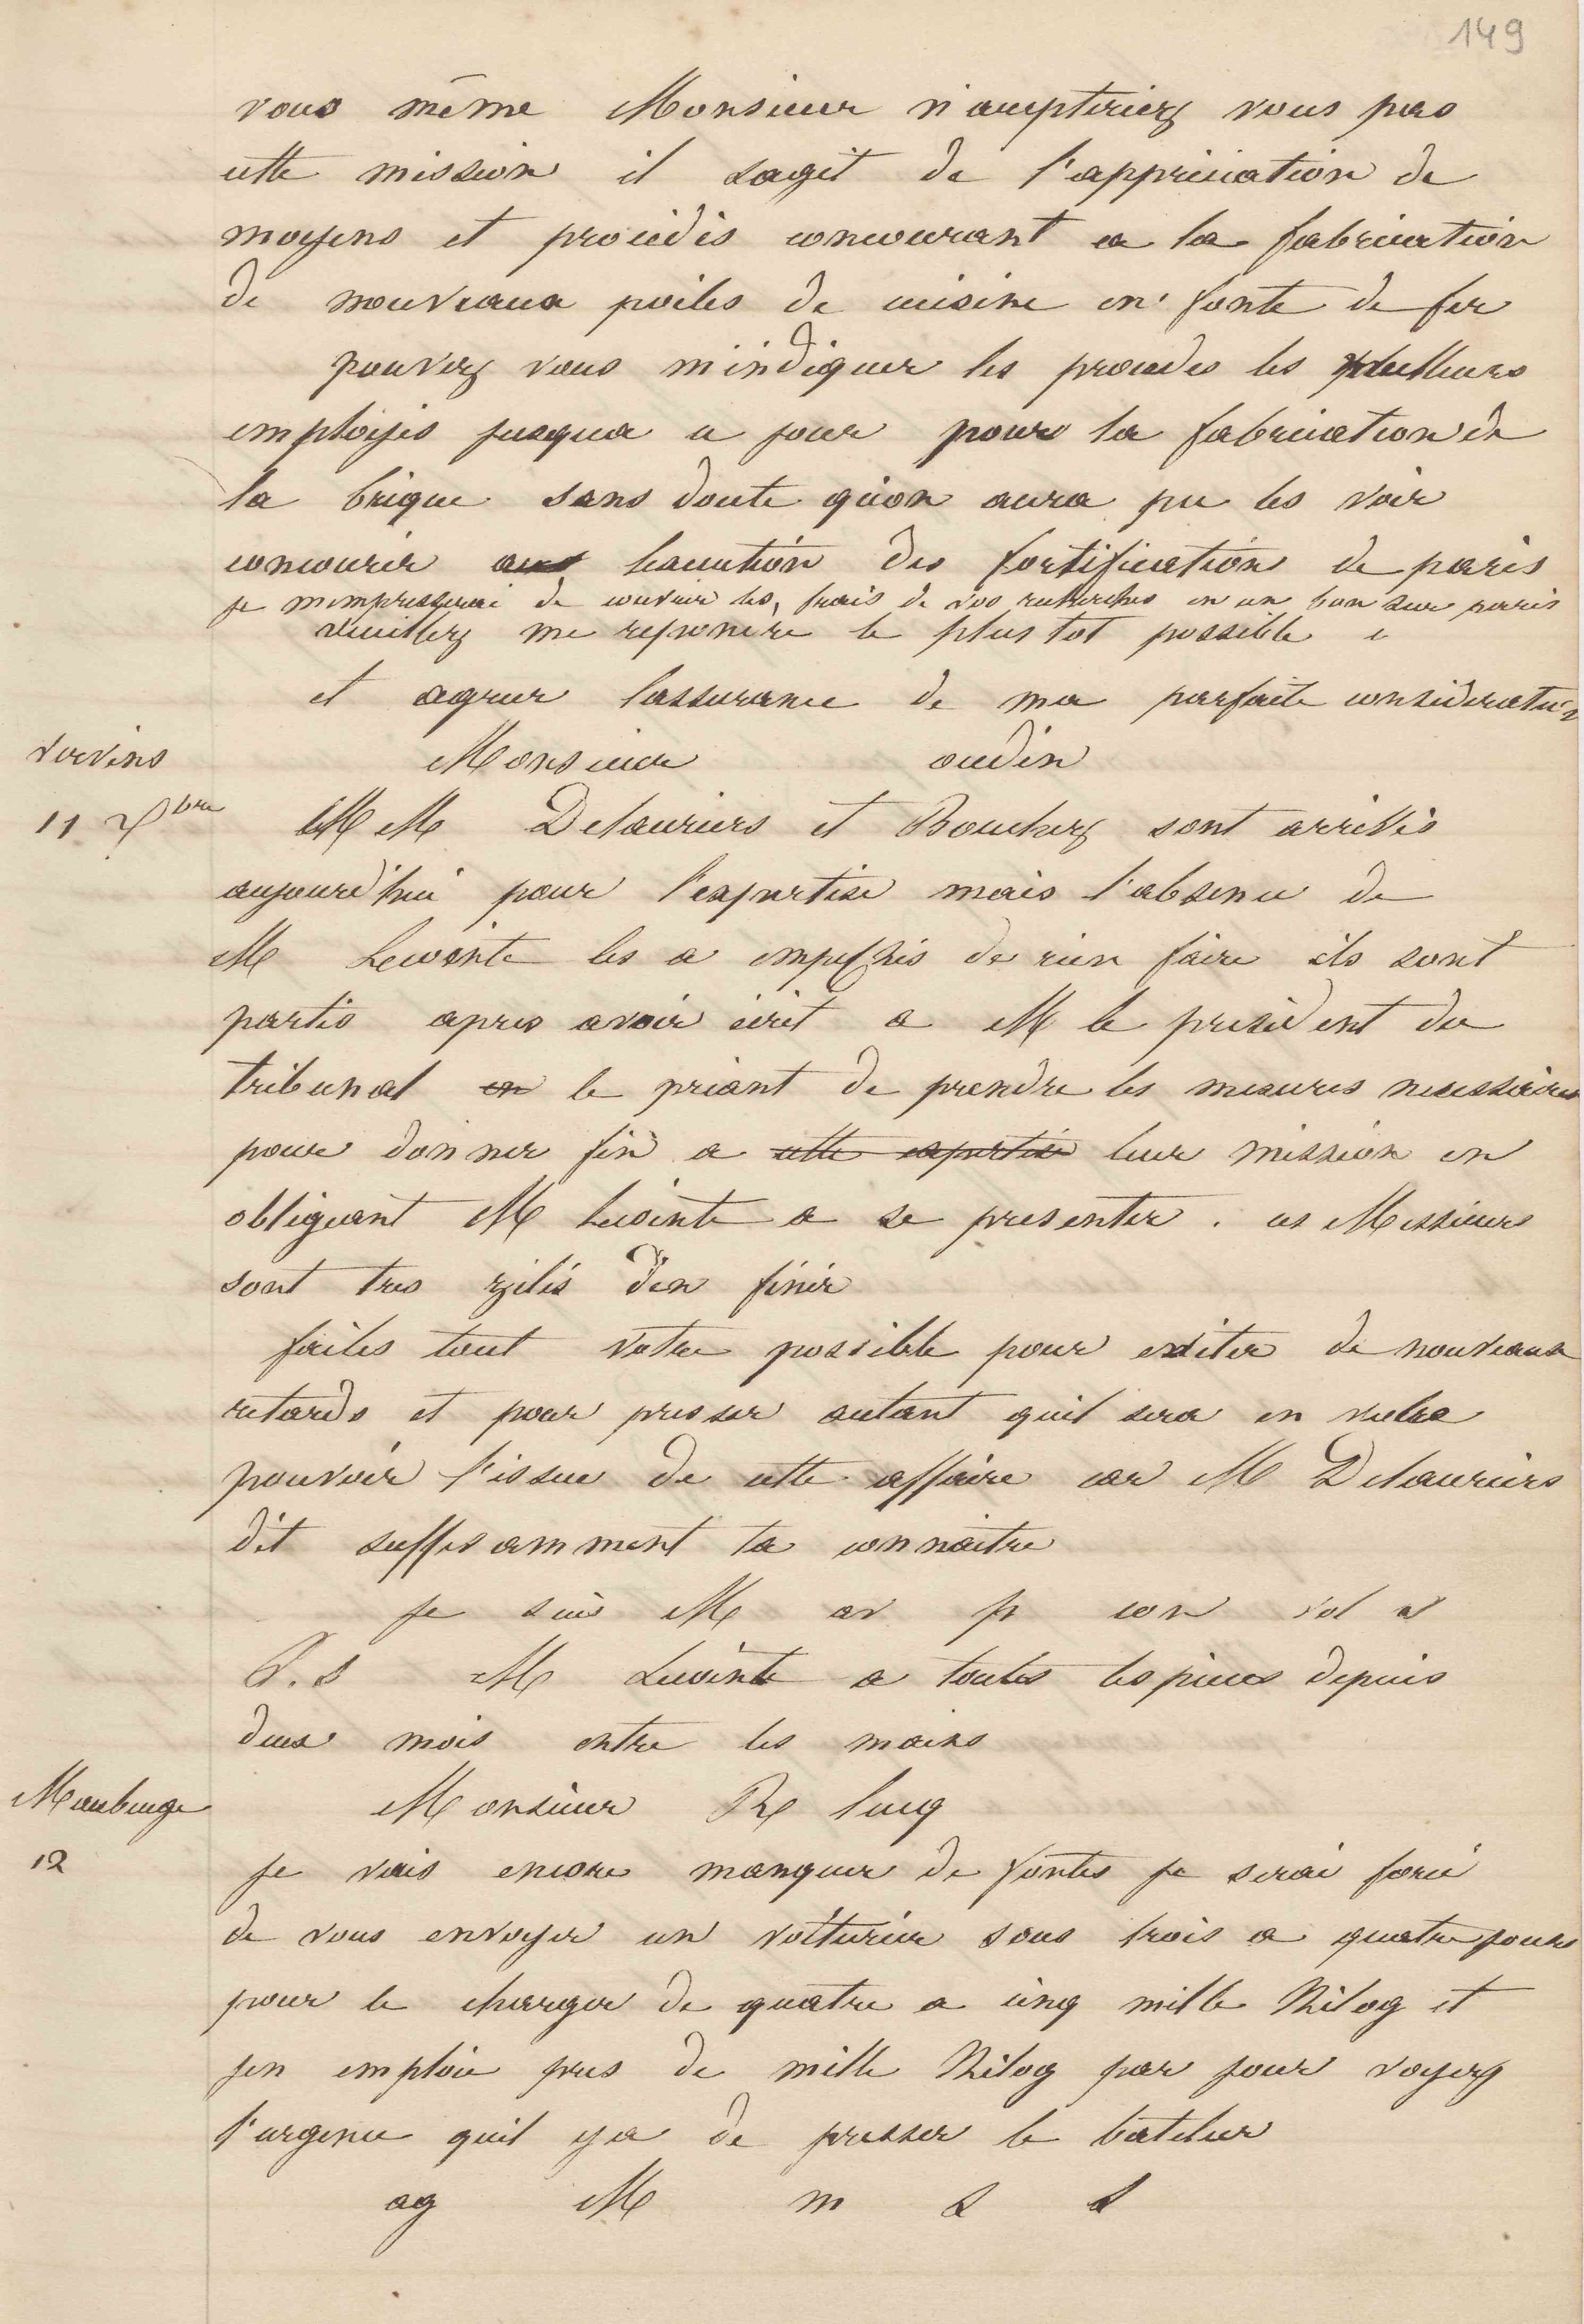 149
vous même Monsieur n'accepteriez vous pas
cette mission il sagit de l'appréciation de
moyens et procédés concourant a la fabrication
de nouveaux poiles de cuisine en fonte de fer
pouvez vous m'indiquer les procedes les meilleurs
emploijés jusqua ce jour pour la fabrication de
la brique sans doute qu'on aura pu les voir
concourir lexecution des fortifications de paris
je m'empresserai de couvrir les frais de vos recherches en un bon sur paris
veuillez me reponere le plus tot possible
et agreer lassurance de ma parfaite consideration
vervins Monsieur oudin
11 Xbre MM Delauriers et Bouchez sont arrivés
aujourd'hui pour l'expertise mais l'absence de
M Lecointe les a empechés de rien faire ils sont
partis apres avoir écrit a M le president du
tribunal en le priant de prendre les mesures necessaires
pour donner fin a cette expertise leur mission en
obligeant M Lecointe a se presenter. ces Messieurs
sont tres zélés d'en finir
faites tout votre possible pour eviter de nouveaux
retards et pour presser autant quil sera en votre
pouvoir l'issue de cette affaire car M Delauriers
dit suffisamment la connaitre
je suis M av p con vol a
P.S M Lecointe a toutes les pieces depuis
deux mois entre les mains
Maubeuge Monsieur R lucq
12 je vais encore manquer de fontes je serai forcé
de vous envoyer un voiturier sous trois a quatre jours
pour le charger de quatre a cinq mille Kilog et
jen emploie pres de mille Kilog par jour voyez
l'urgence quil ya de presser le batelier
ag M m s s